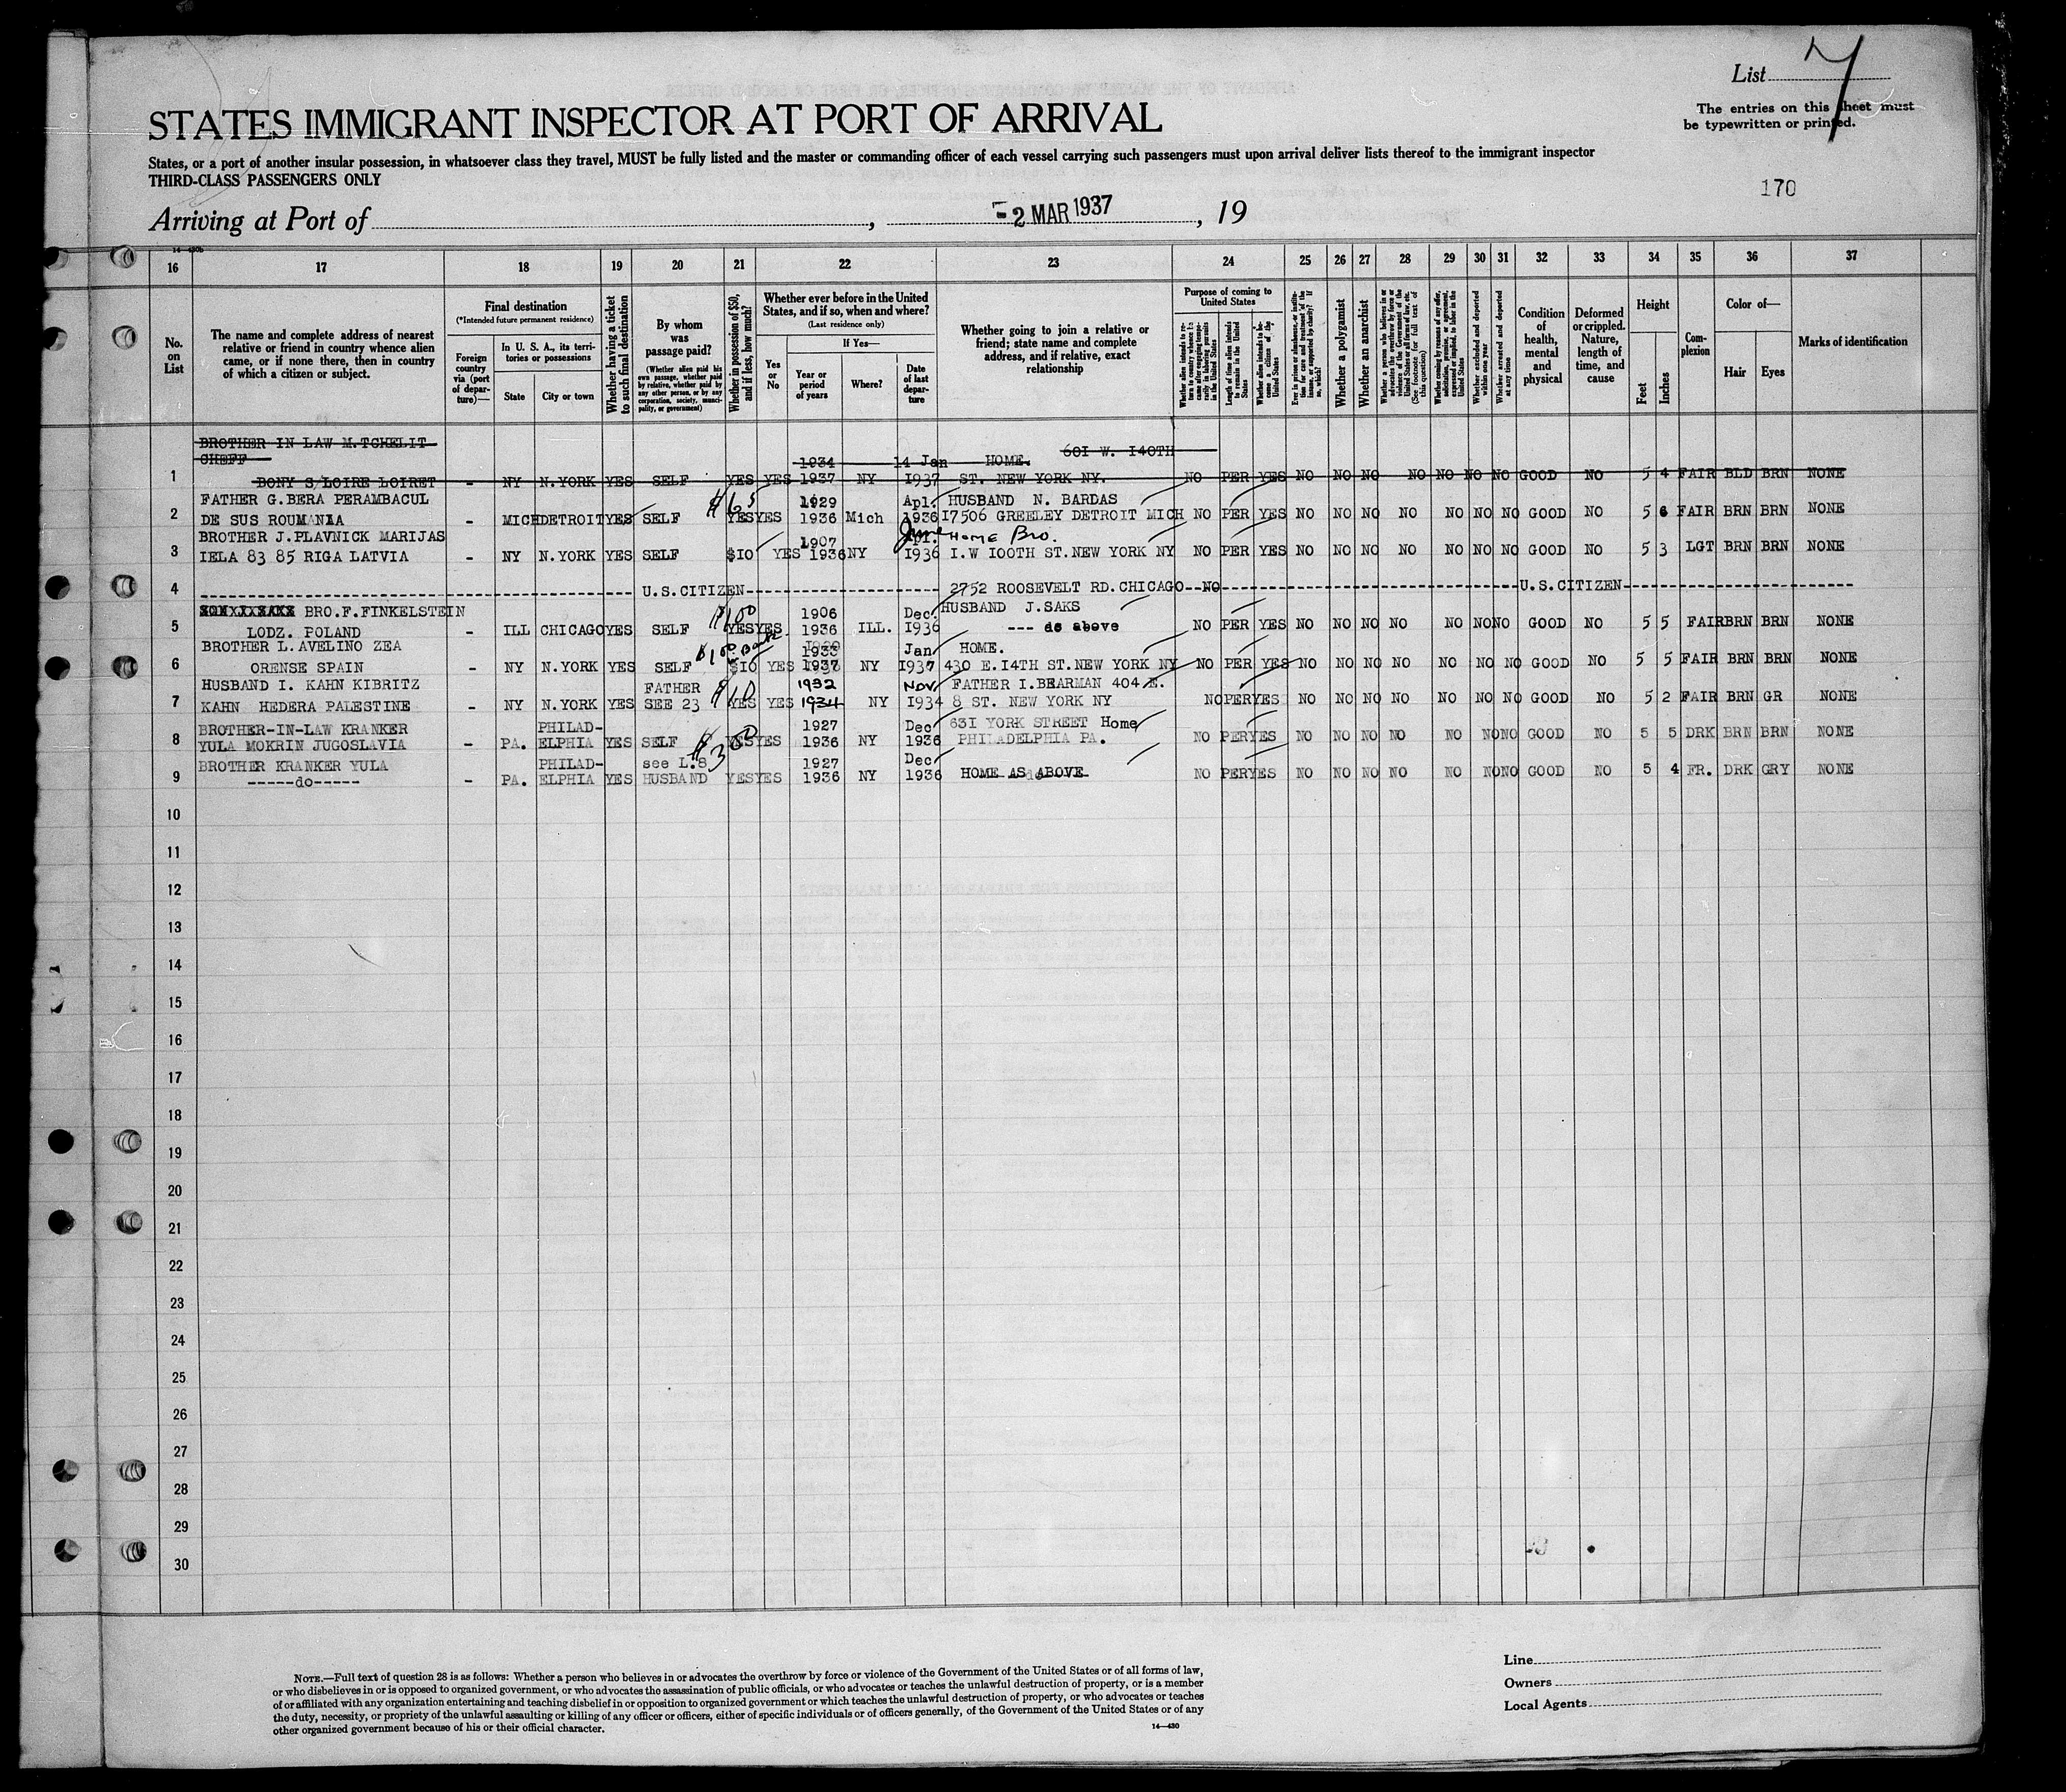 List 7
The entries on this sheet must
be typewritten or printed.
STATES IMMIGRANT INSPECTOR AT PORT OF ARRIVAL
States, or a port of another insular possession, in whatsoever class they travel, MUST be fully listed and the master or commanding officer of each vessel carrying such passengers must upon arrival deliver lists thereof to the immigrant inspector
THIRD-CLASS PASSENGERS ONLY
170
Arriving at Port of , -2 MAR 1937 , 19
14-430b
16 17 18 19 20 21 22 23 24 25 26 27 28 29 30 31 32 33 34 35 36 37
No. on List
The name and complete address of nearest relative or friend in country whence alien came, or if none there, then in country of which a citizen or subject.
Final destination
(*Intended future permanent residence)
Foreign country via (port of departure)—
In U. S. A., its territories or possessions
State
City or town
Whether having a ticket to such final destination
By whom was passage paid?
(Whether alien paid his own passage, whether paid by relative, whether paid by any other person, or by any corporation, society, municipality, or government)
Whether in possession of $50, and if less, how much?
Whether ever before in the United States, and if so, when and where?
(Last residence only)
Yes or No
If Yes—
Year or period of years
Where?
Date of last departure
Whether going to join a relative or friend; state name and complete address, and if relative, exact relationship
Purpose of coming to United States
Length of time alien intends to remain in the United States
Whether alien intends to become a citizen of the United States
Whether a polygamist
Whether an anarchist
Whether excluded and deported within one year
Whether arrested and deported at any time
Condition of health, mental and physical
Deformed or crippled. Nature, length of time, and cause
Height
Feet
Inches
Complexion
Color of—
Hair
Eyes
Marks of identification
BROTHER IN LAW M.TCHELIT
CHEFF 1934 14 Jan HOME. 601 W. 140TH
1 BONY S/LOIRE LOIRET - NY N.YORK YES SELF YES YES 1937 NY 1937 ST. NEW YORK NY. NO PER YES NO NO NO NO NO NO NO GOOD NO 5 4 FAIR BLD BRN NONE
FATHER G.BERA PERAMBACUL $65 1929 Apl. HUSBAND N. BARDAS
2 DE SUS ROUMANIA - MICH DETROIT YES SELF YES YES 1936 Mich 1936 17506 GREELEY DETROIT MICH NO PER YES NO NO NO NO NO NO NO GOOD NO 5 6 FAIR BRN BRN NONE
BROTHER J.PLAVNICK MARIJAS 1907 Apl. June HOME Bro.
3 IELA 83 85 RIGA LATVIA - NY N.YORK YES SELF $10 YES 1936 NY 1936 I.W 100TH ST.NEW YORK NY NO PER YES NO NO NO NO NO NO NO GOOD NO 5 3 LGT BRN BRN NONE
4 U.S.CITIZEN 2752 ROOSEVELT RD.CHICAGO--NO U.S.CITIZEN
BRO.F.FINKELSTEIN $100 1906 Dec. HUSBAND J.SAKS
5 LODZ. POLAND - ILL CHICAGO YES SELF YES YES 1936 ILL. 1936 --- do above NO PER YES NO NO NO NO NO NO NO GOOD NO 5 5 FAIR BRN BRN NONE
BROTHER L.AVELINO ZEA Jan HOME.
6 ORENSE SPAIN - NY N.YORK YES SELF $10 YES 1937 NY 1937 430 E.14TH ST.NEW YORK NY NO PER YES NO NO NO NO NO NO NO GOOD NO 5 5 FAIR BRN BRN NONE
HUSBAND I. KAHN KIBRITZ FATHER $10 1932 NOV FATHER I.BEARMAN 404 E.
7 KAHN HEDERA PALESTINE - NY N.YORK YES SEE 23 YES YES 1934 NY 1934 8 ST. NEW YORK NY NO PER YES NO NO NO NO NO NO NO GOOD NO 5 2 FAIR BRN GR NONE
BROTHER-IN-LAW KRANKER PHILAD- 1927 Dec 631 YORK STREET Home
8 YULA MOKRIN JUGOSLAVIA - PA. ELPHIA YES SELF $300 YES YES 1936 NY 1936 PHILADELPHIA PA. NO PER YES NO NO NO NO NO NO NO GOOD NO 5 5 DRK BRN BRN NONE
BROTHER KRANKER YULA PHILAD- see L.8 1927 Dec
9 -----do----- - PA. ELPHIA YES HUSBAND YES YES 1936 NY 1936 HOME AS ABOVE NO PER YES NO NO NO NO NO NO NO GOOD NO 5 4 FR. DRK GRY NONE
10
11
12
13
14
15
16
17
18
19
20
21
22
23
24
25
26
27
28
29
30
NOTE.—Full text of question 28 is as follows: Whether a person who believes in or advocates the overthrow by force or violence of the Government of the United States or of all forms of law,
or who disbelieves in or is opposed to organized government, or who advocates the assassination of public officials, or who advocates or teaches the unlawful destruction of property, or is a member
of or affiliated with any organization entertaining and teaching disbelief in or opposition to organized government or which teaches the unlawful destruction of property, or who advocates or teaches
the duty, necessity, or propriety of the unlawful assaulting or killing of any officer or officers, either of specific individuals or of officers generally, of the Government of the United States or of any
other organized government because of his or their official character.
14—430
Line
Owners
Local Agents